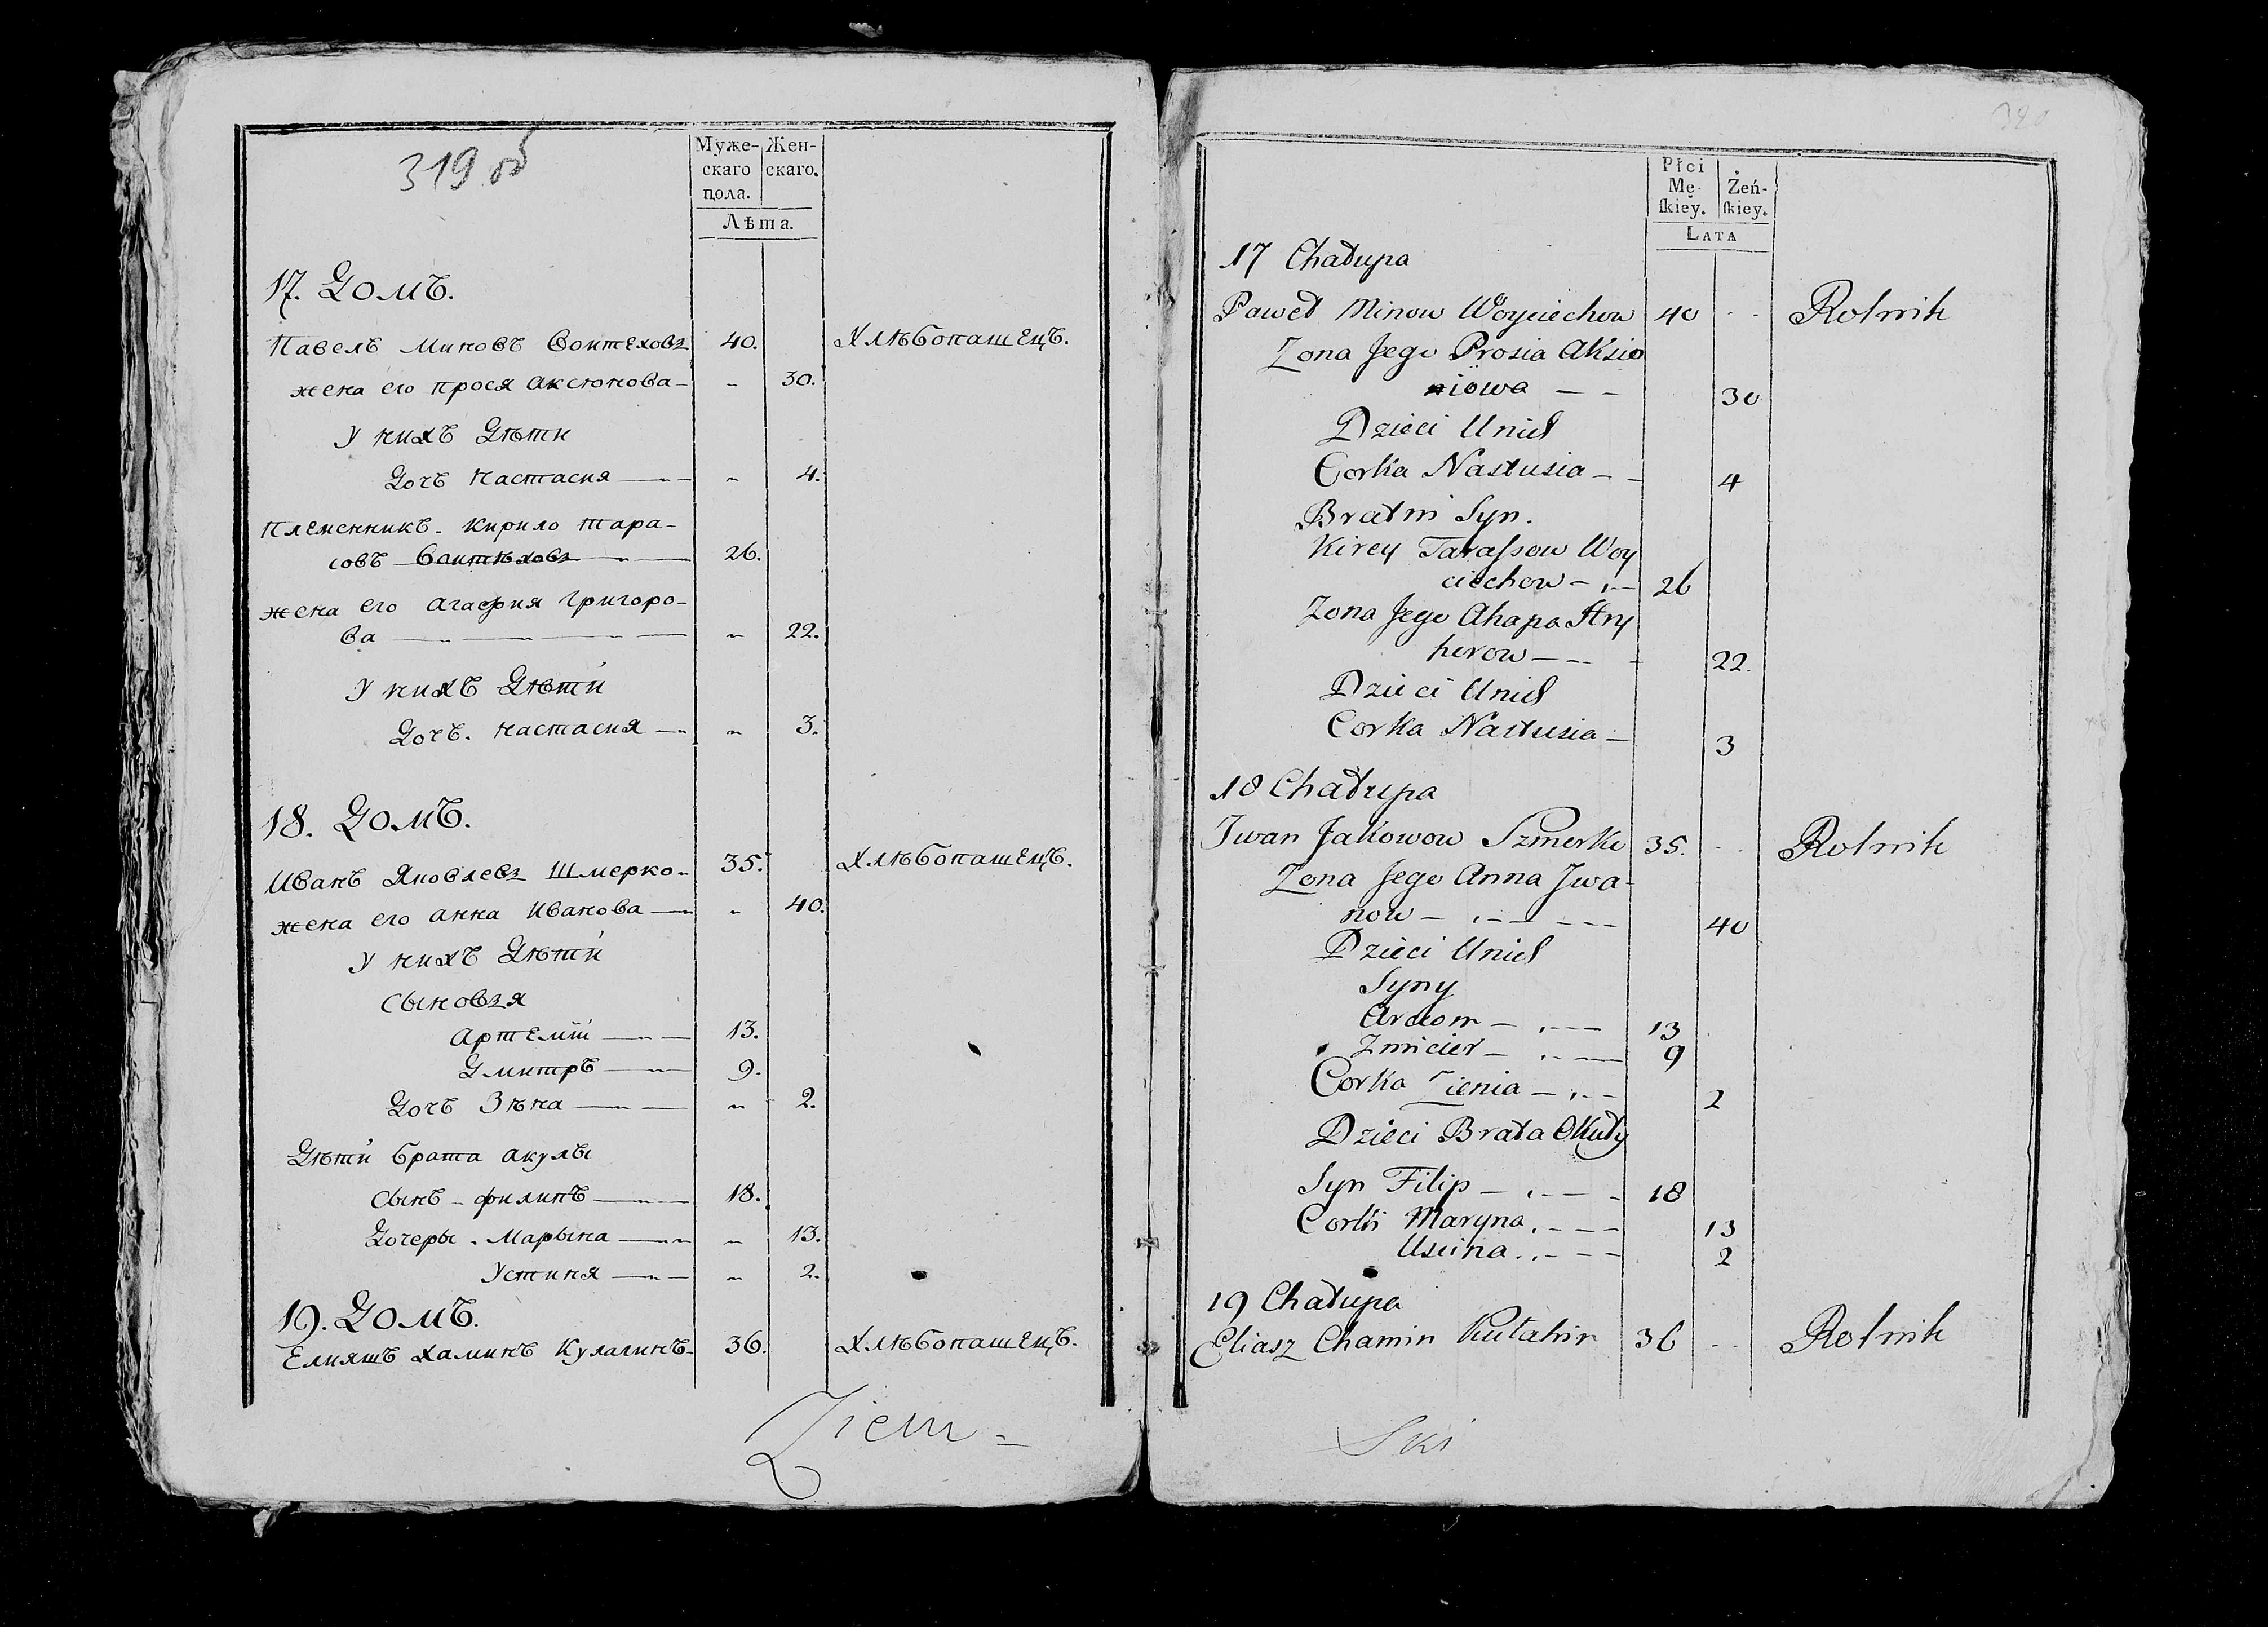 319 об
Муже-
скаго
пола.
Жен-
скаго.
Лѣта.
17. Домъ.
Павелъ Миновъ Воитеховъ 40. Хлѣбопашецъ.
жена его прося аксюнова - „ 30.
у нихъ Дѣти
Дочъ настасия „ 4.
племенникъ. кирило тара-
совъ Воитѣховъ 26.
жена его агафия григоро-
ва „ 22.
у нихъ Дѣти
Дочъ. настасия „ 3.
18. Домъ.
Иванъ Яковлевъ Шмерко - 35. Хлѣбопашецъ.
жена его анна Иванова „ 40.
у нихъ Дѣти
сыновъя
артемій 13.
Дмитръ 9.
Дочъ Зѣна „ 2.
Дѣти брата акулы
сынъ - филипъ 18.
Дочеры. Марына „ 13.
Устиня „ 2.
19. Домъ.
Елияшъ хаминъ Кулагинъ - 36. Хлѣбопашецъ.
Ziem =
Płci
Mę-
skiey.
Żeń-
skiey.
LATA
17 Chałupa
Paweł Minow Woyciechow 40 Rolnik
Zona Jego Prosia Aksio
niowa — — 30
Dzieci Unich
Corka Nastusia — — 4
Bratni Syn.
Kirey Tarassow Woy
ciechow — 26
Zona Jego Ahapa Hry
horow — 22.
Dzieci Unich
Corka Nastusia — 3
18 Chałupa
Jwan Jakowow Szmerko 35. Rolnik
Zona Jego Anna Jwa-
now — 40
Dzieci Unich
Syny
Arciom — 13
Zmicier — 9
Corka Zienia — 2
Dzieci Brata Okuły
Syn Filip — 18
Corki Maryna 13
Uscina 2
19 Chałupa
Eliasz Chamin Kułahin 36 Rolnik
Ski